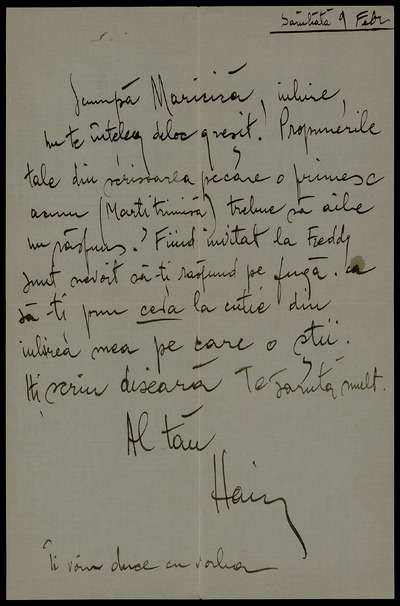 Sâmbătă 9 Febr
Scumpă Maricica, iubire,
nu te înțeleg deloc greșit. Propunerile
tale din scrisoarea pe care o primesc
acum (Marti trimisă) trebue să aibe
un răspuns? Fiind invitat la Freddy
sunt nevoit să-ti raspund pe fugă. ca
să-ti pun ceva la cutie din
iubirea mea pe care o știi.
Iți scriu diseară Te sărută mult.
Al tău
Iti voiu duce cu vorba